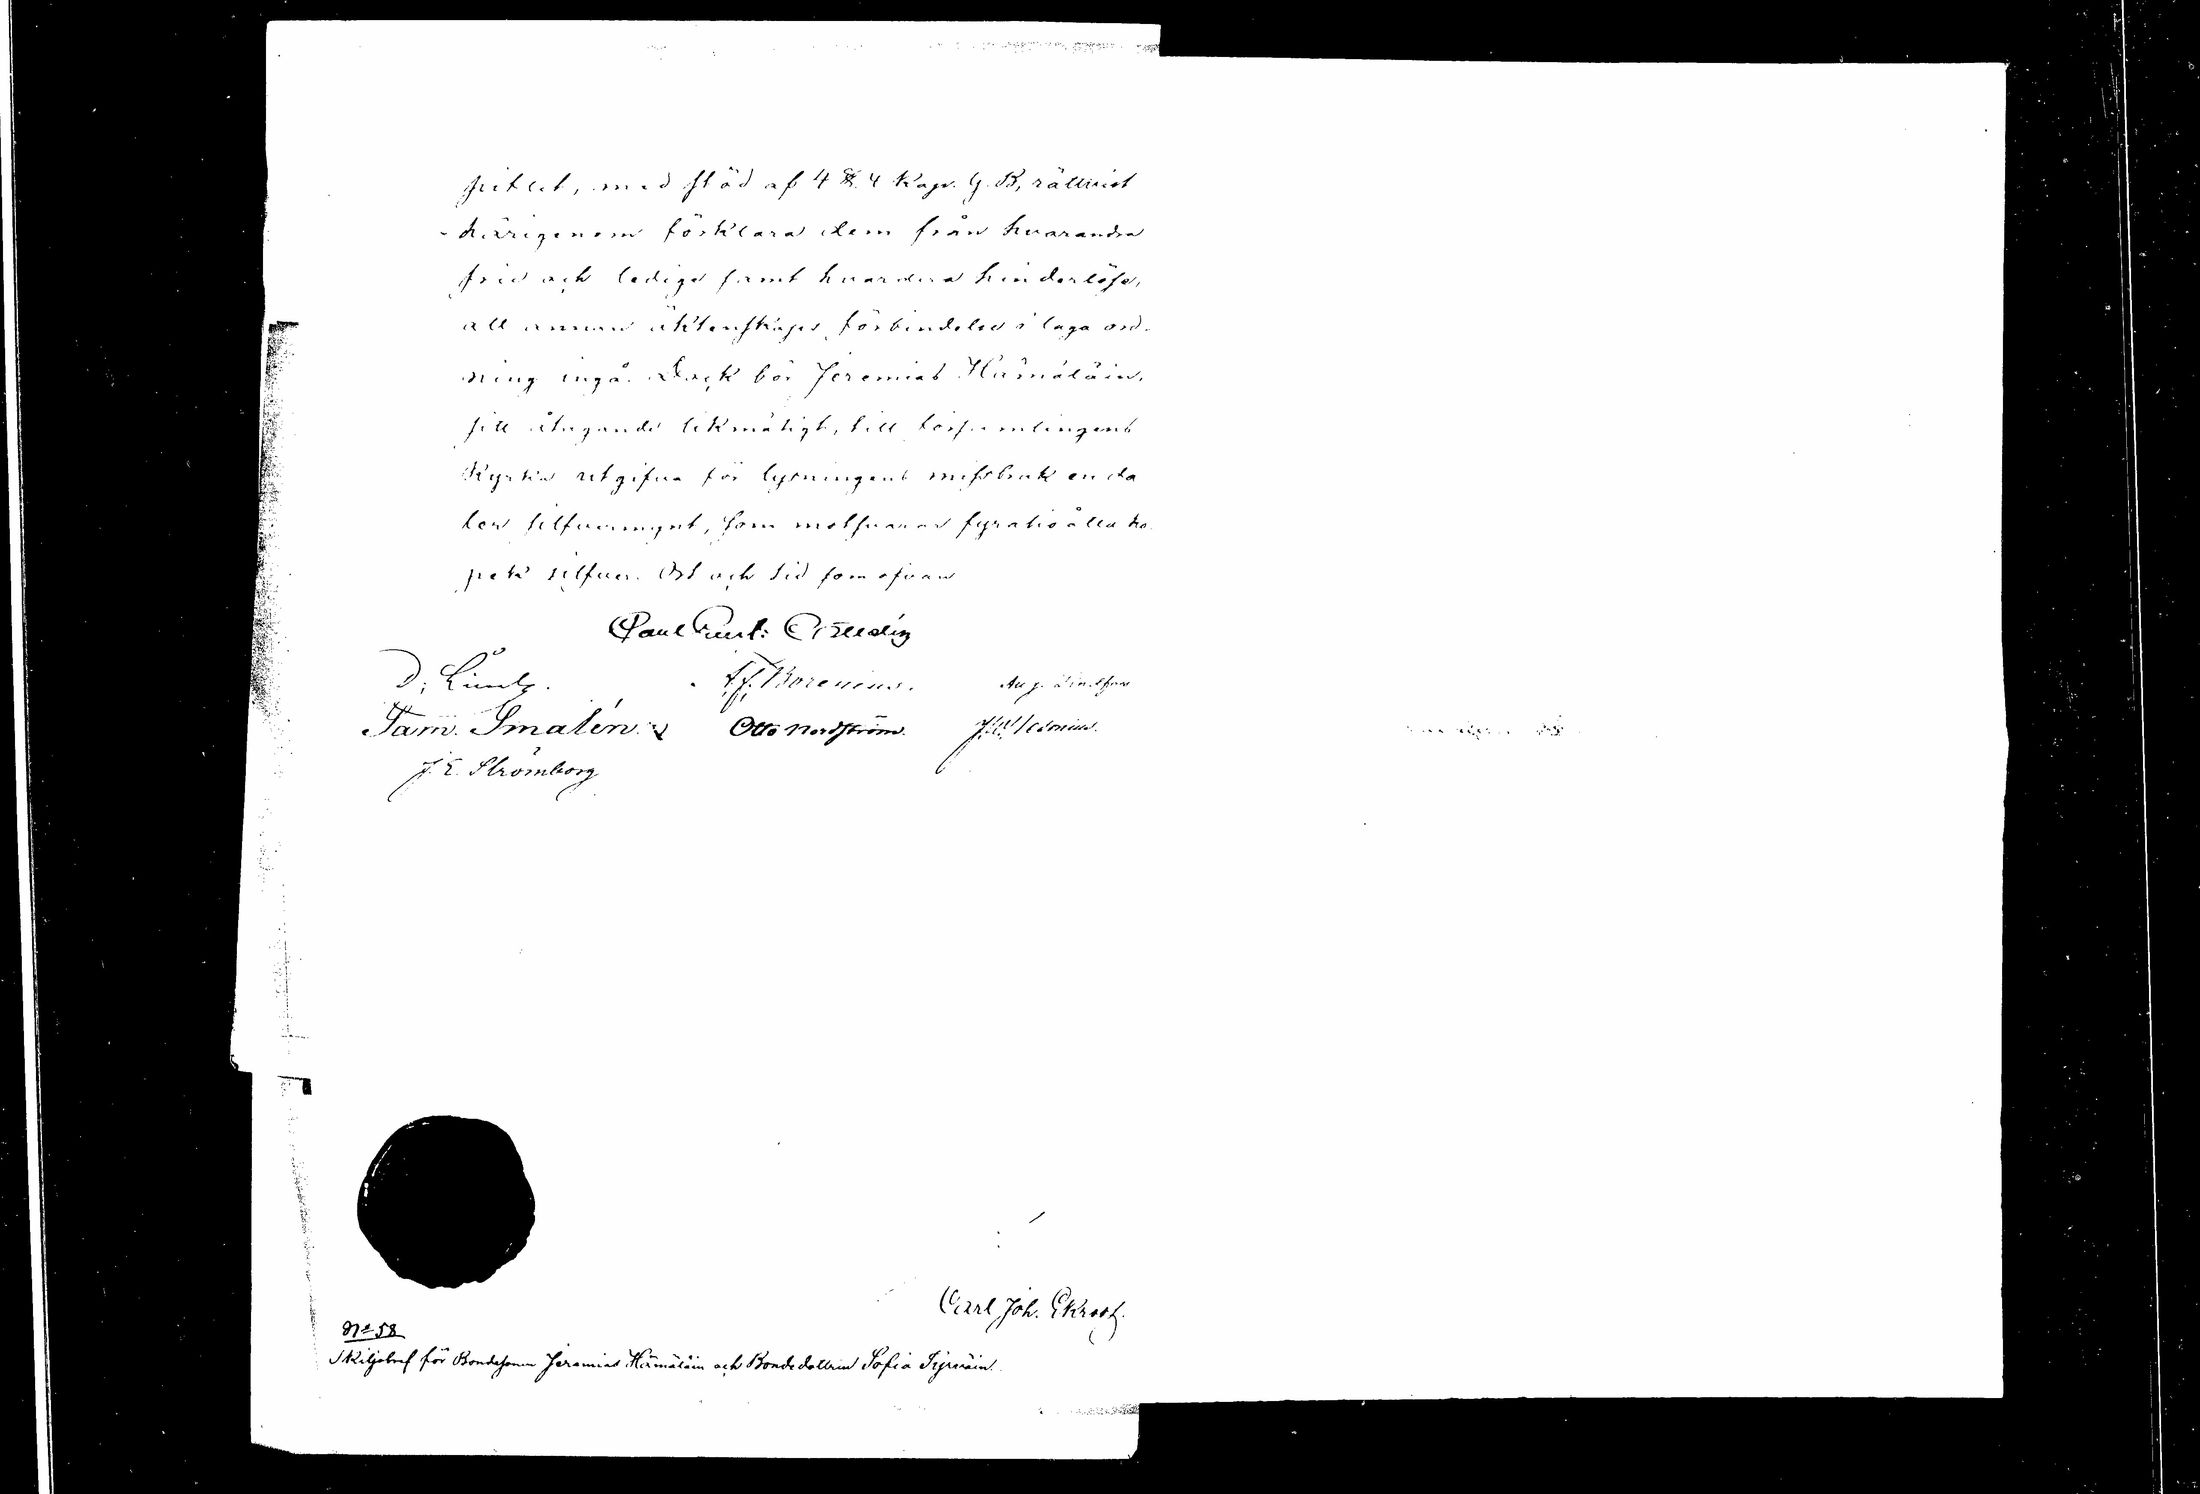 pitlet, med stöd af 4 §. 4 Kap. G. B, rättvist
härigenom förklara dem från hvarandra
fria och lediga samt hvardera hinderlöse,
all annan äktenskaps förbindelse i laga ord-
ning ingå. Dock bör Jeremias Hämäläin,
sitt åtagande likmätigt, till församlingens
Kyrka utgifva för lysningens missbruk en da
ler silfvermynt, som motsvarar fyratioåtta ko
pek silfver. Ort och tid som ofvan
Paul
D:
Borenius. Aug.
Sam. Smalén. Otto Nordström.
J. E. Strömborg
Carl Joh. Ekroot.
No 58
Skiljobref för Bondesonen Jeremias Hämäläin och Bondedottren Sofia